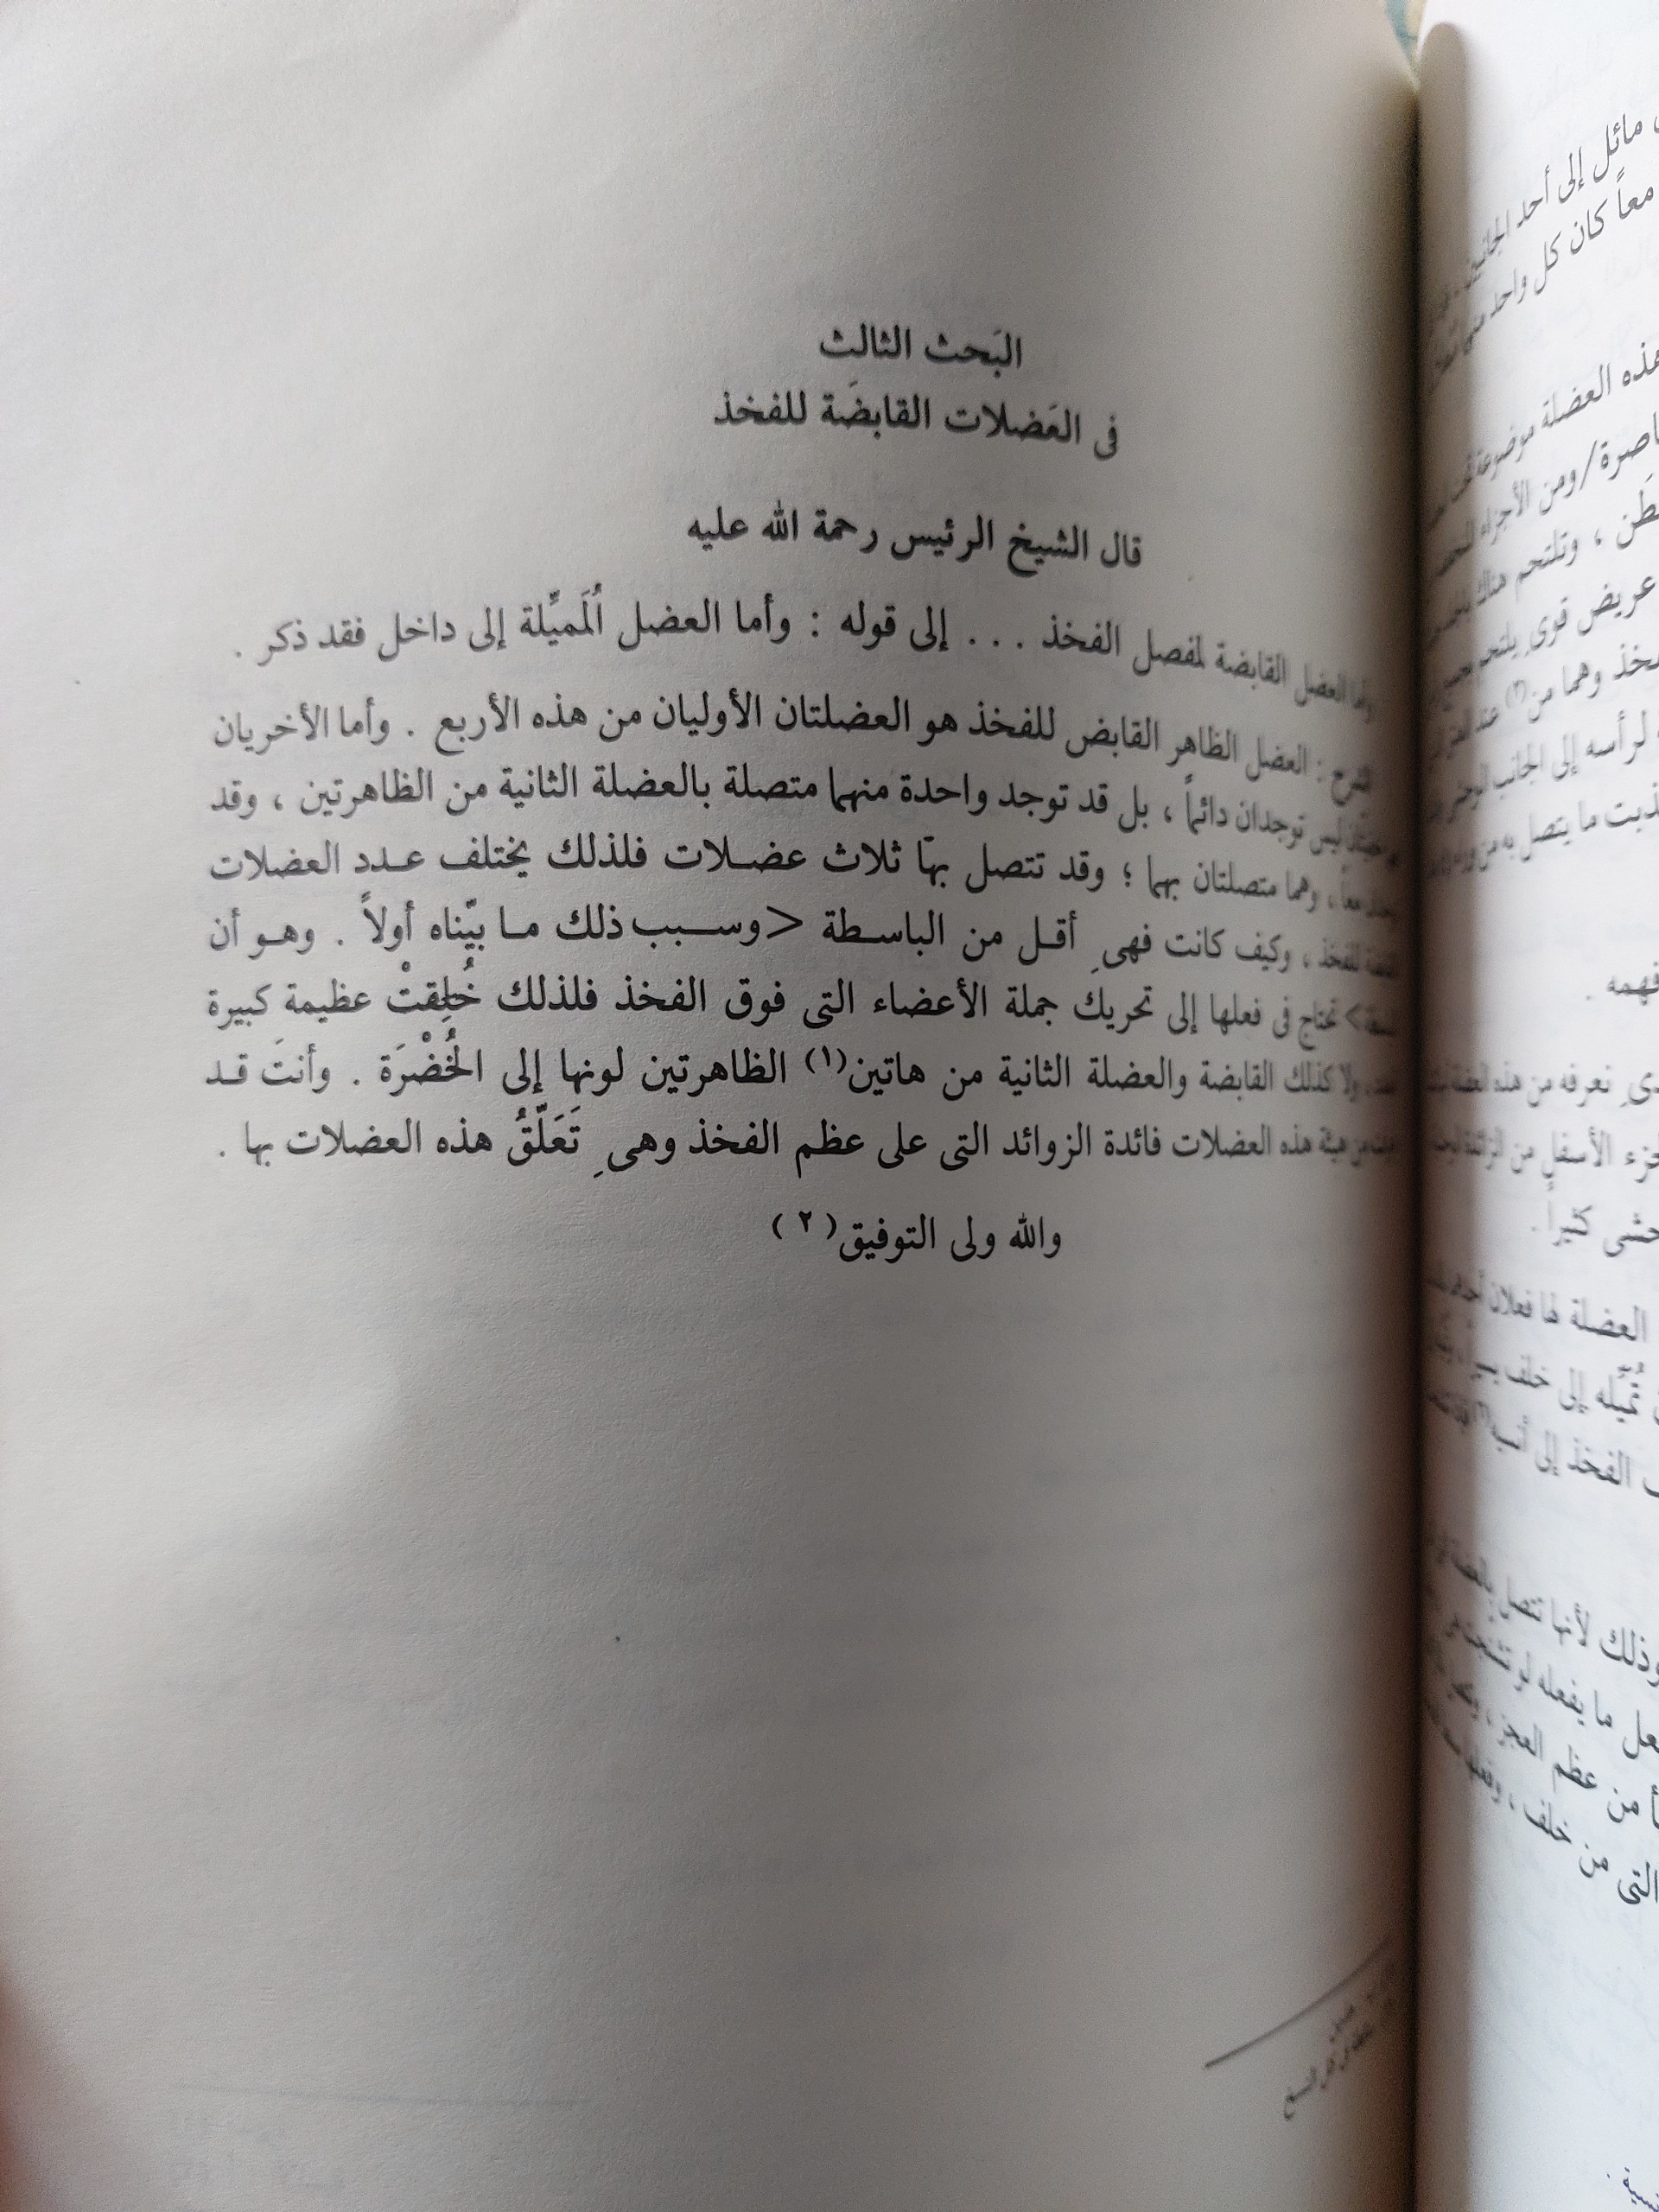 البَحث الثالث
فى العَضلات القابضَة للفخذ
قال الشيخ الرئيس رحمة الله عليه
وأما العضل القابضة لمفصل الفخذ . . . إلى قوله : وأما العضل اُلَميِّلة إلى داخل فقد ذكر .
الشرح : العضل الظاهر القابض للفخذ هو العضلتان الأوليان من هذه الأربع . وأما الأخريان
ليس توجدان دائماً ، بل قد توجد واحدة منهما متصلة بالعضلة الثانية من الظاهرتين ، وقد
معاً ، وهما متصلتان بهما ؛ وقد تتصل بهَا ثلاث عضلات فلذلك يختلف عدد العضلات
للفخذ ، وكيف كانت فهى أقل من الباسطة <وسبب ذلك ما بيّناه أولاً . وهو أن
> تحتاج فى فعلها إلى تحريك جملة الأعضاء التى فوق الفخذ فلذلك خُلِقتْ عظيمة كبيرة
ولا كذلك القابضة والعضلة الثانية من هاتين(١) الظاهرتين لونها إلى الخُضْرَة . وأنتَ قد
من هيئة هذه العضلات فائدة الزوائد التى على عظم الفخذ وهى تَعَلّقُ هذه العضلات بها .
والله ولى التوفيق(٢)
مائل إلى أحد
معاً كان كل واحد
هذه العضلة موضوعة
/ومن الأجزاء
، وتلتحم هناك
عريض قوى يلتحم
وهما من(٢) عند
لرأسه إلى الجانب
ما يتصل به من
فهمه .
نعرفه من هذه
الأسفل من
كثيراً .
العضلة لها فعلان
تُميّله إلى خلف
الفخذ إلى
وذلك لأنها تتصل
ما يفعله لو
من عظم العجز ،
التى من خلف ،